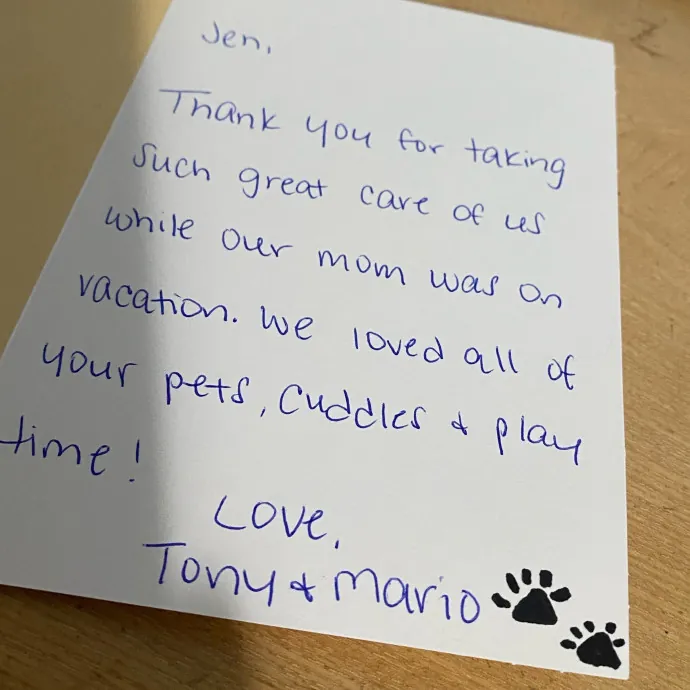 Jen,
Thank you for taking
such great care of us
while our mom was on
vacation. We loved all of
your pets, cuddles & play
time!
Love,
Tony & Mario